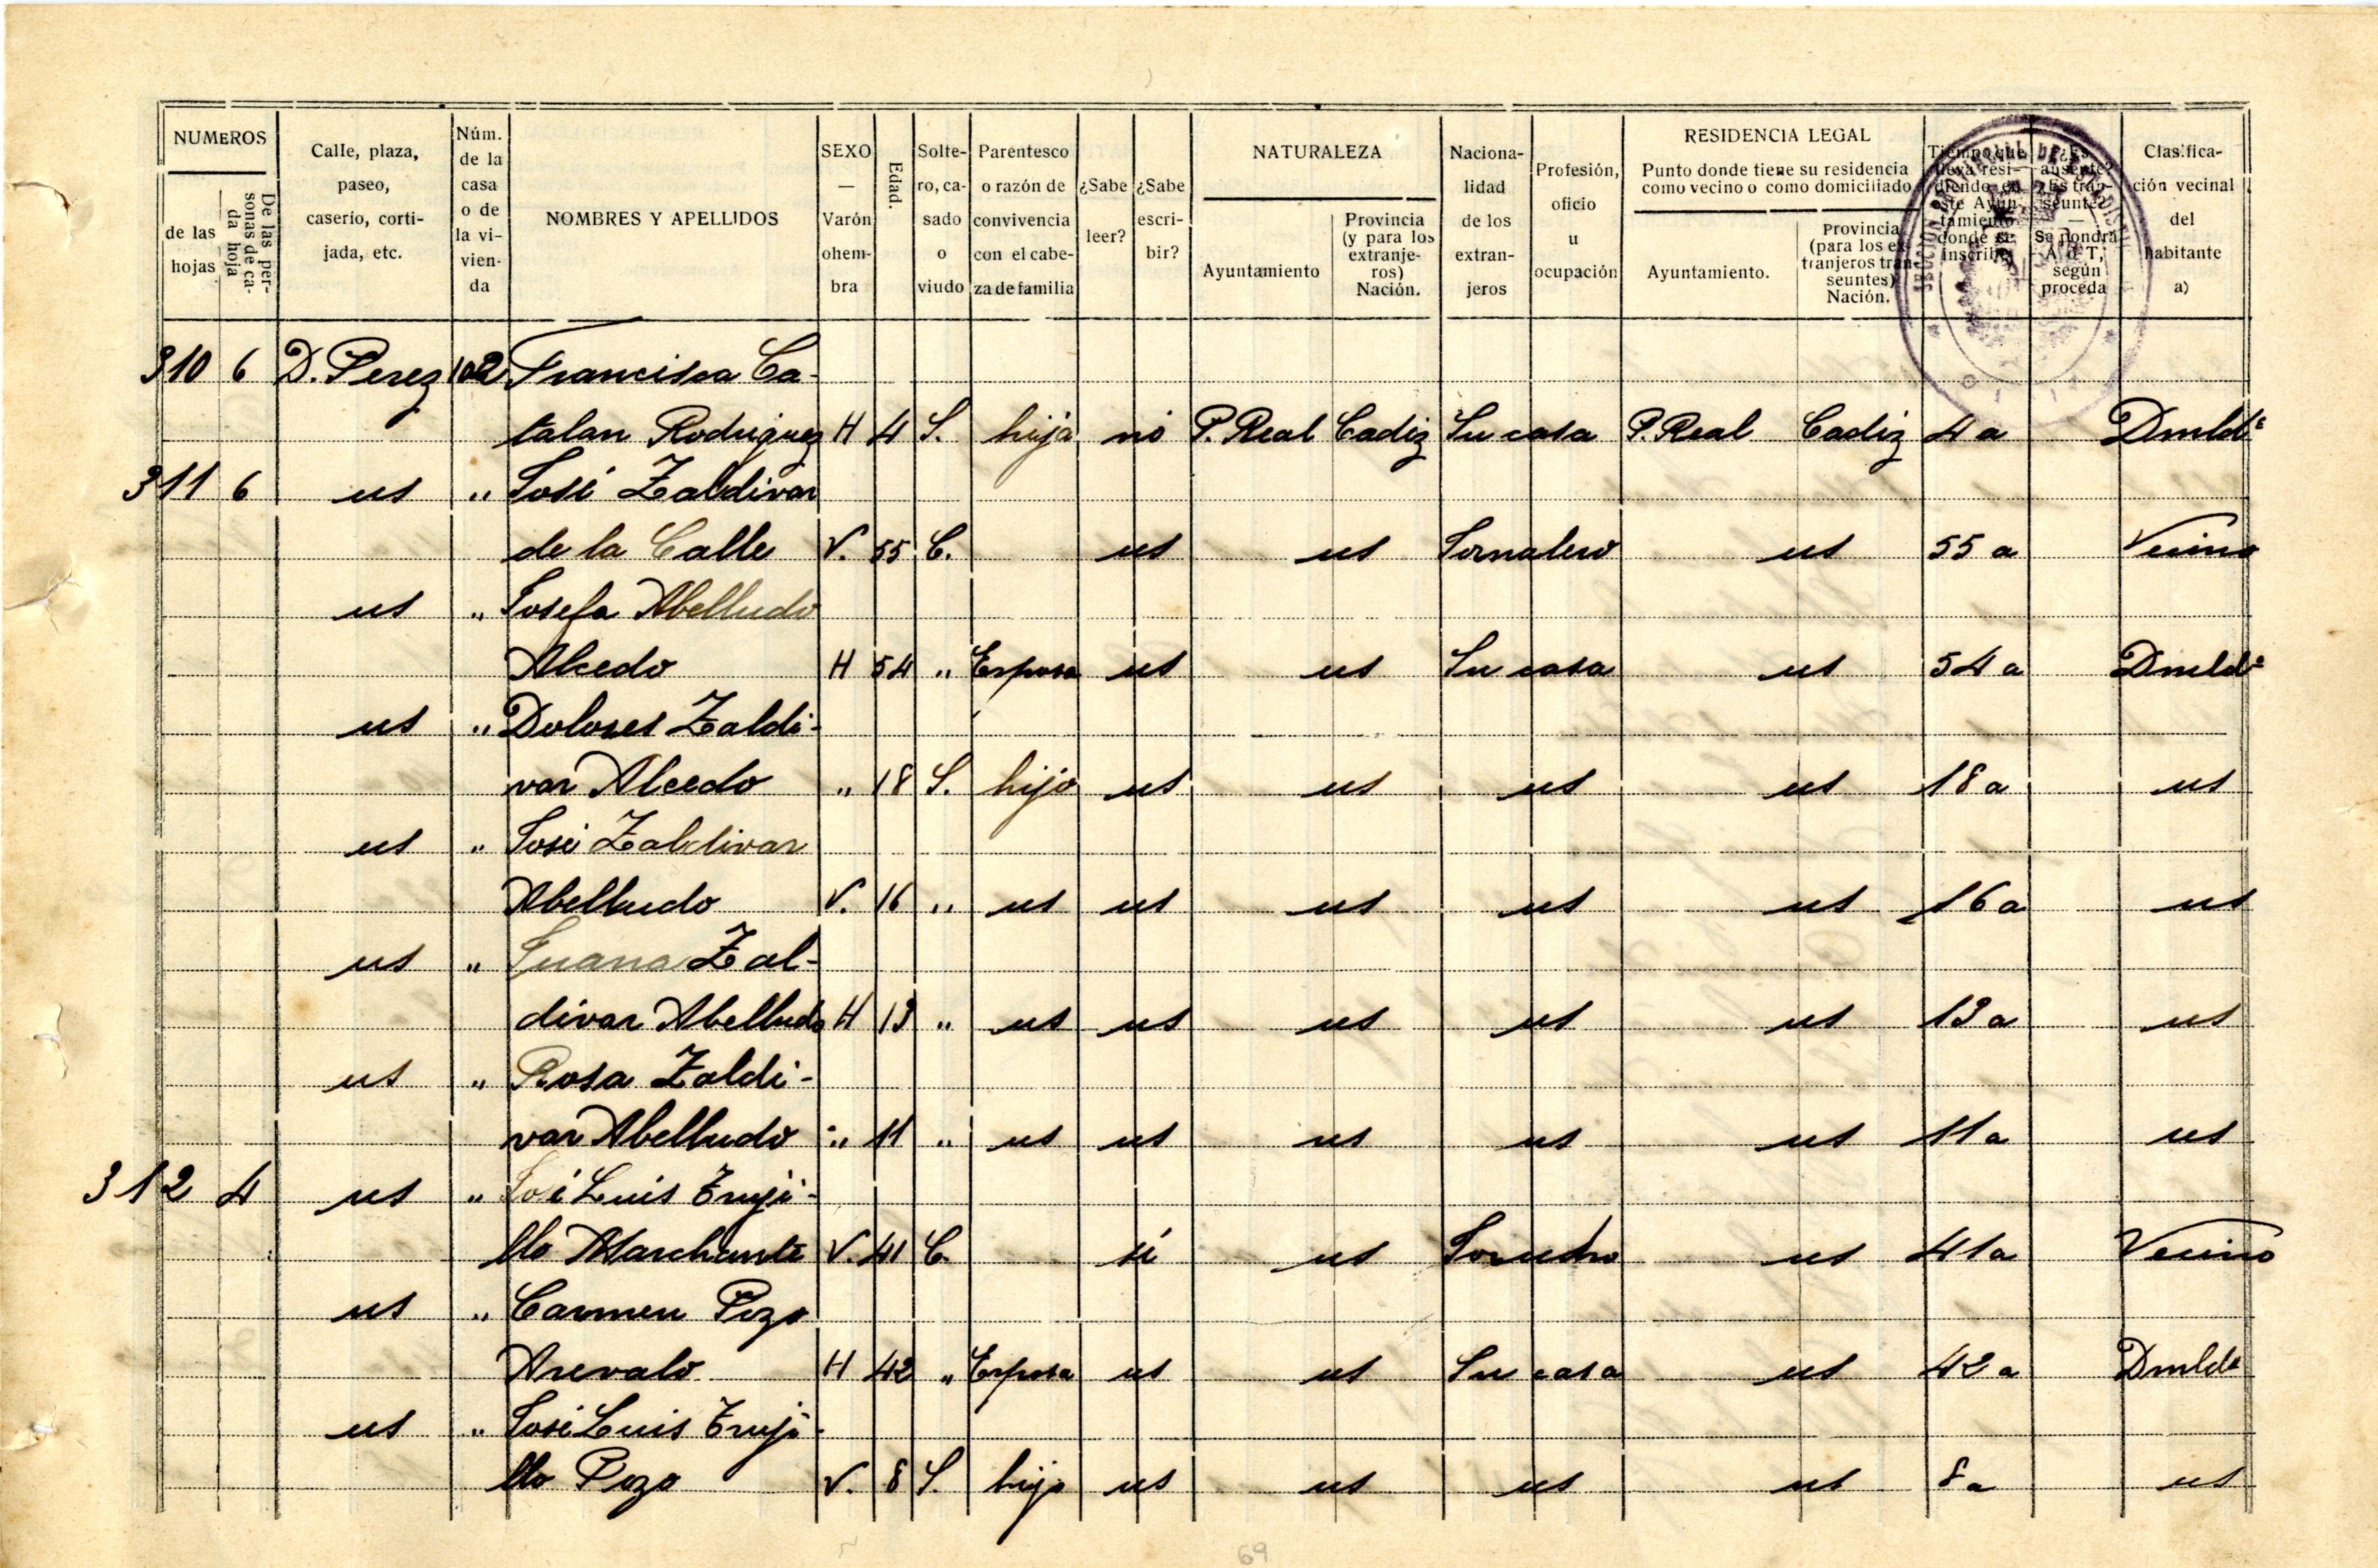 NUMEROS
de las hojas
De las personas de cada hoja
Calle, plaza, paseo, caserío, cortijada, etc.
Núm. de la casa o de la vivienda
NOMBRES Y APELLIDOS
SEXO — Varón o hembra
Edad.
Soltero, casado o viudo
Parentesco o razón de convivencia con el cabeza de familia
¿Sabe leer?
¿Sabe escribir?
NATURALEZA
Ayuntamiento
Provincia (y para los extranjeros) Nación.
Nacionalidad de los extranjeros
Profesión, oficio u ocupación
RESIDENCIA LEGAL
Punto donde tiene su residencia como vecino o como domiciliado
Ayuntamiento.
Provincia (para los extranjeros transeuntes) Nación.
Tiempo que lleva residiendo en este Ayuntamiento donde se inscribe
¿Es ausente? ¿Es transeunte? — Se pondrá A o T, según proceda
Clasificación vecinal del habitante a)
310 6 D. Perez 102 Francisca Ca-
talan Rodriguez H 4 S. hija no P. Real Cadiz Su casa P. Real Cadiz 4 a Dmldª
311 6 us " José Zaldivar
de la Calle V. 55 C. us us Jornalero us 55 a Vecino
us " Josefa Abelludo
Alcedo H 54 " Esposa us us Su casa us 54 a Dmldª
us " Dolores Zaldi-
var Alcedo " 18 S. hija us us us us 18 a us
us " José Zaldivar
Abelludo V. 16 " us us us us us 16 a us
us " Juana Zal-
divar Abelludo H 13 " us us us us us 13 a us
us " Rosa Zaldi-
var Abelludo " 11 " us us us us us 11 a us
312 4 us " José Luis Truji-
llo Marchante V. 41 C. si us us 41 a Vecino
us " Carmen Pozo
Arevalo H 42 " Esposa us us Su casa us 42 a Dmldª
us " José Luis Truji-
llo Pozo V. 8 S. hijo us us us us 8 a us
69